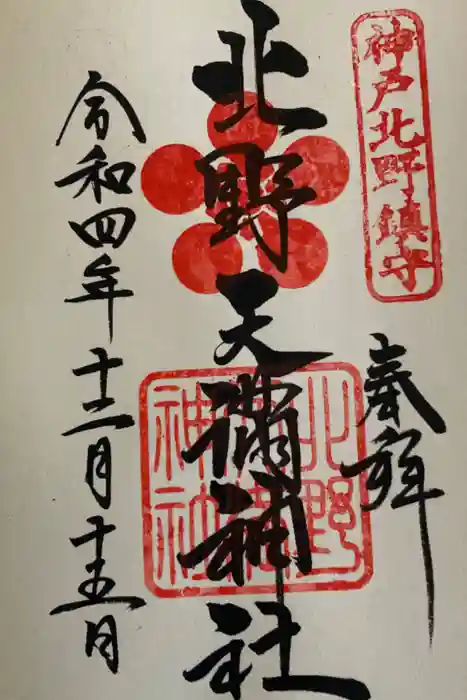 神戸北野鎮守
奉拝
北野天満神社
北野天満神社
令和四年十二月十五日